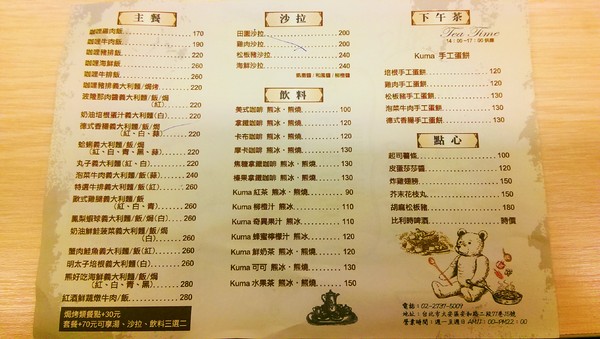 主餐
咖哩雞肉飯 170
咖哩牛肉飯 190
咖哩豬排飯 220
咖哩海鮮飯 260
咖哩牛排飯 260
咖哩豬排義大利麵/飯/焗烤 220
波隆那肉醬義大利麵/飯/焗
(紅) 220
奶油培根蛋汁義大利麵(白) 220
德式香腸義大利麵/飯/焗
(紅、白、蒜) 220
蛤蜊義大利麵/飯/焗
(紅、白、青、黑、蒜) 220
丸子義大利麵(紅、白) 220
泡菜牛肉義大利麵(蒜) 240
特選牛排義大利麵/飯(紅) 260
歐式雞腿義大利麵/飯
(紅、白、青) 260
鳳梨蝦球義大利麵/飯/焗(白) 260
奶油鮮鮭菠菜義大利麵/飯/焗
(白) 260
蟹肉鮭魚義大利麵(紅、白) 260
明太子培根義大利麵(白) 260
熊好吃海鮮義大利麵/飯/焗
(紅、白、青、黑) 280
紅酒鮮蔬燉牛肉/飯 280
焗烤類餐點+30元
套餐+70元可享湯、沙拉、飲料三選二
沙拉
田園沙拉 200
雞肉沙拉 200
松板豬沙拉 240
海鮮沙拉 240
飲料
美式咖啡 熊冰·熊燒 100
拿鐵咖啡 熊冰·熊燒 120
卡布咖啡 熊冰·熊燒 120
摩卡咖啡 熊冰·熊燒 130
焦糖拿鐵咖啡 熊冰·熊燒 130
榛果拿鐵咖啡 熊冰·熊燒 130
Kuma 紅茶 熊冰·熊燒 90
Kuma 柳橙汁 熊冰 110
Kuma 奇異果汁 熊冰 110
Kuma 蜂蜜檸檬汁 熊冰 120
Kuma 鮮奶茶 熊冰·熊燒 120
Kuma 可可 熊冰·熊燒 130
Kuma 水果茶 熊冰·熊燒 150
下午茶
Tea Time
14:05-17:30供應
Kuma 手工蛋餅
培根手工蛋餅 120
雞肉手工蛋餅 130
松板豬手工蛋餅 130
泡菜牛肉手工蛋餅 130
德式香腸手工蛋餅 130
點心
超司薯條 100
皮蛋莎莎醬 120
炸雞翅膀 150
芥末花枝丸 150
胡麻松板豬 180
比利時啤酒 時價
電話:02-2739-5009
地址:台北市大安區安和路二段77巷15號
營業時間:週一至週日 AM11:00-PM22:00